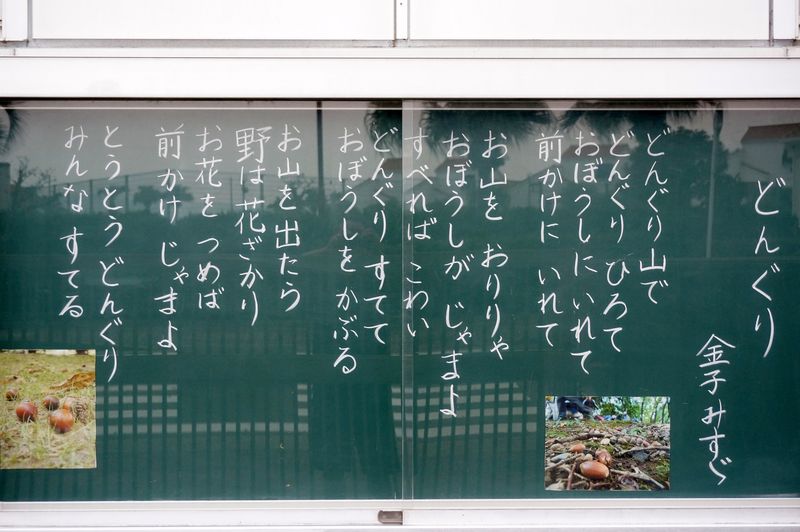 どんぐり
金子みすゞ
どんぐり山で
どんぐり ひろて
おぼうしに いれて
前かけに いれて
お山を おりりゃ
おぼうしが じゃまよ
すべれば こわい
どんぐり すてて
おぼうしを かぶる
お山を 出たら
野は 花ざかり
お花を つめば
前かけ じゃまよ
とうとう どんぐり
みんな すてる